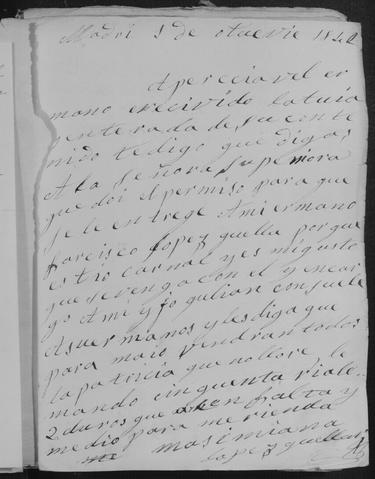 Madri 1 de otuvrie 1842
Apreciavel er
mano e recivido la tuia
y enterada de su conte
nido te digo que digas
A la señora supeniora
que doi el permiso para que
se le entrege Ami ermano
farcisco lopez guella porque
es tio carnal y es migusto
que se venga con el y encar
go Ami yjo gulian consuele
Asuermanos y les diga que
para maio vendran todos
la patricia que no llore le
mando cinquenta riale
2 duros que acen falta y
medio para merienda
masimiana
lopez guella